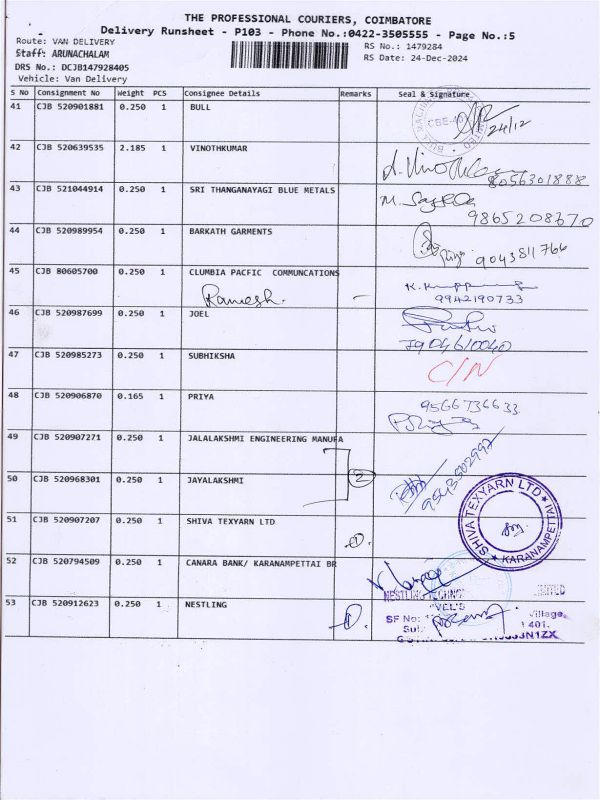 THE PROFESSIONAL COURIERS, COIMBATORE
Delivery Runsheet - P103 - Phone No.:0422-3505555 - Page No.:5
Route: VAN DELIVERY
RS No.: 1479284
Staff: ARUNACHALAM
RS Date: 24-Dec-2024
DRS No.: DCJB147928405
Vehicle: Van Delivery
S No Consignment No Weight PCS Consignee Details Remarks Seal & Signature
41 CJB 520901881 0.250 1 BULL
24/12
42 CJB 520639535 2.185 1 VINOTHKUMAR
8056301888
43 CJB 521044914 0.250 1 SRI THANGANAYAGI BLUE METALS
9865208370
44 CJB 520989954 0.250 1 BARKATH GARMENTS
Priya 9043811766
45 CJB 80605700 0.250 1 CLUMBIA PACFIC COMMUNCATIONS
Ramesh.
9942190733
46 CJB 520987699 0.250 1 JOEL
7904610040
47 CJB 520985273 0.250 1 SUBHIKSHA
C/N
48 CJB 520906870 0.165 1 PRIYA
9566736633
49 CJB 520907271 0.250 1 JALALAKSHMI ENGINEERING MANUFA
9543502997
50 CJB 520968301 0.250 1 JAYALAKSHMI
2
51 CJB 520907207 0.250 1 SHIVA TEXYARN LTD
1
SHIVA TEXYARN LTD
KARANAMPETTAI
52 CJB 520794509 0.250 1 CANARA BANK/ KARANAMPETTAI BR
53 CJB 520912623 0.250 1 NESTLING
1
SF No:
Village,